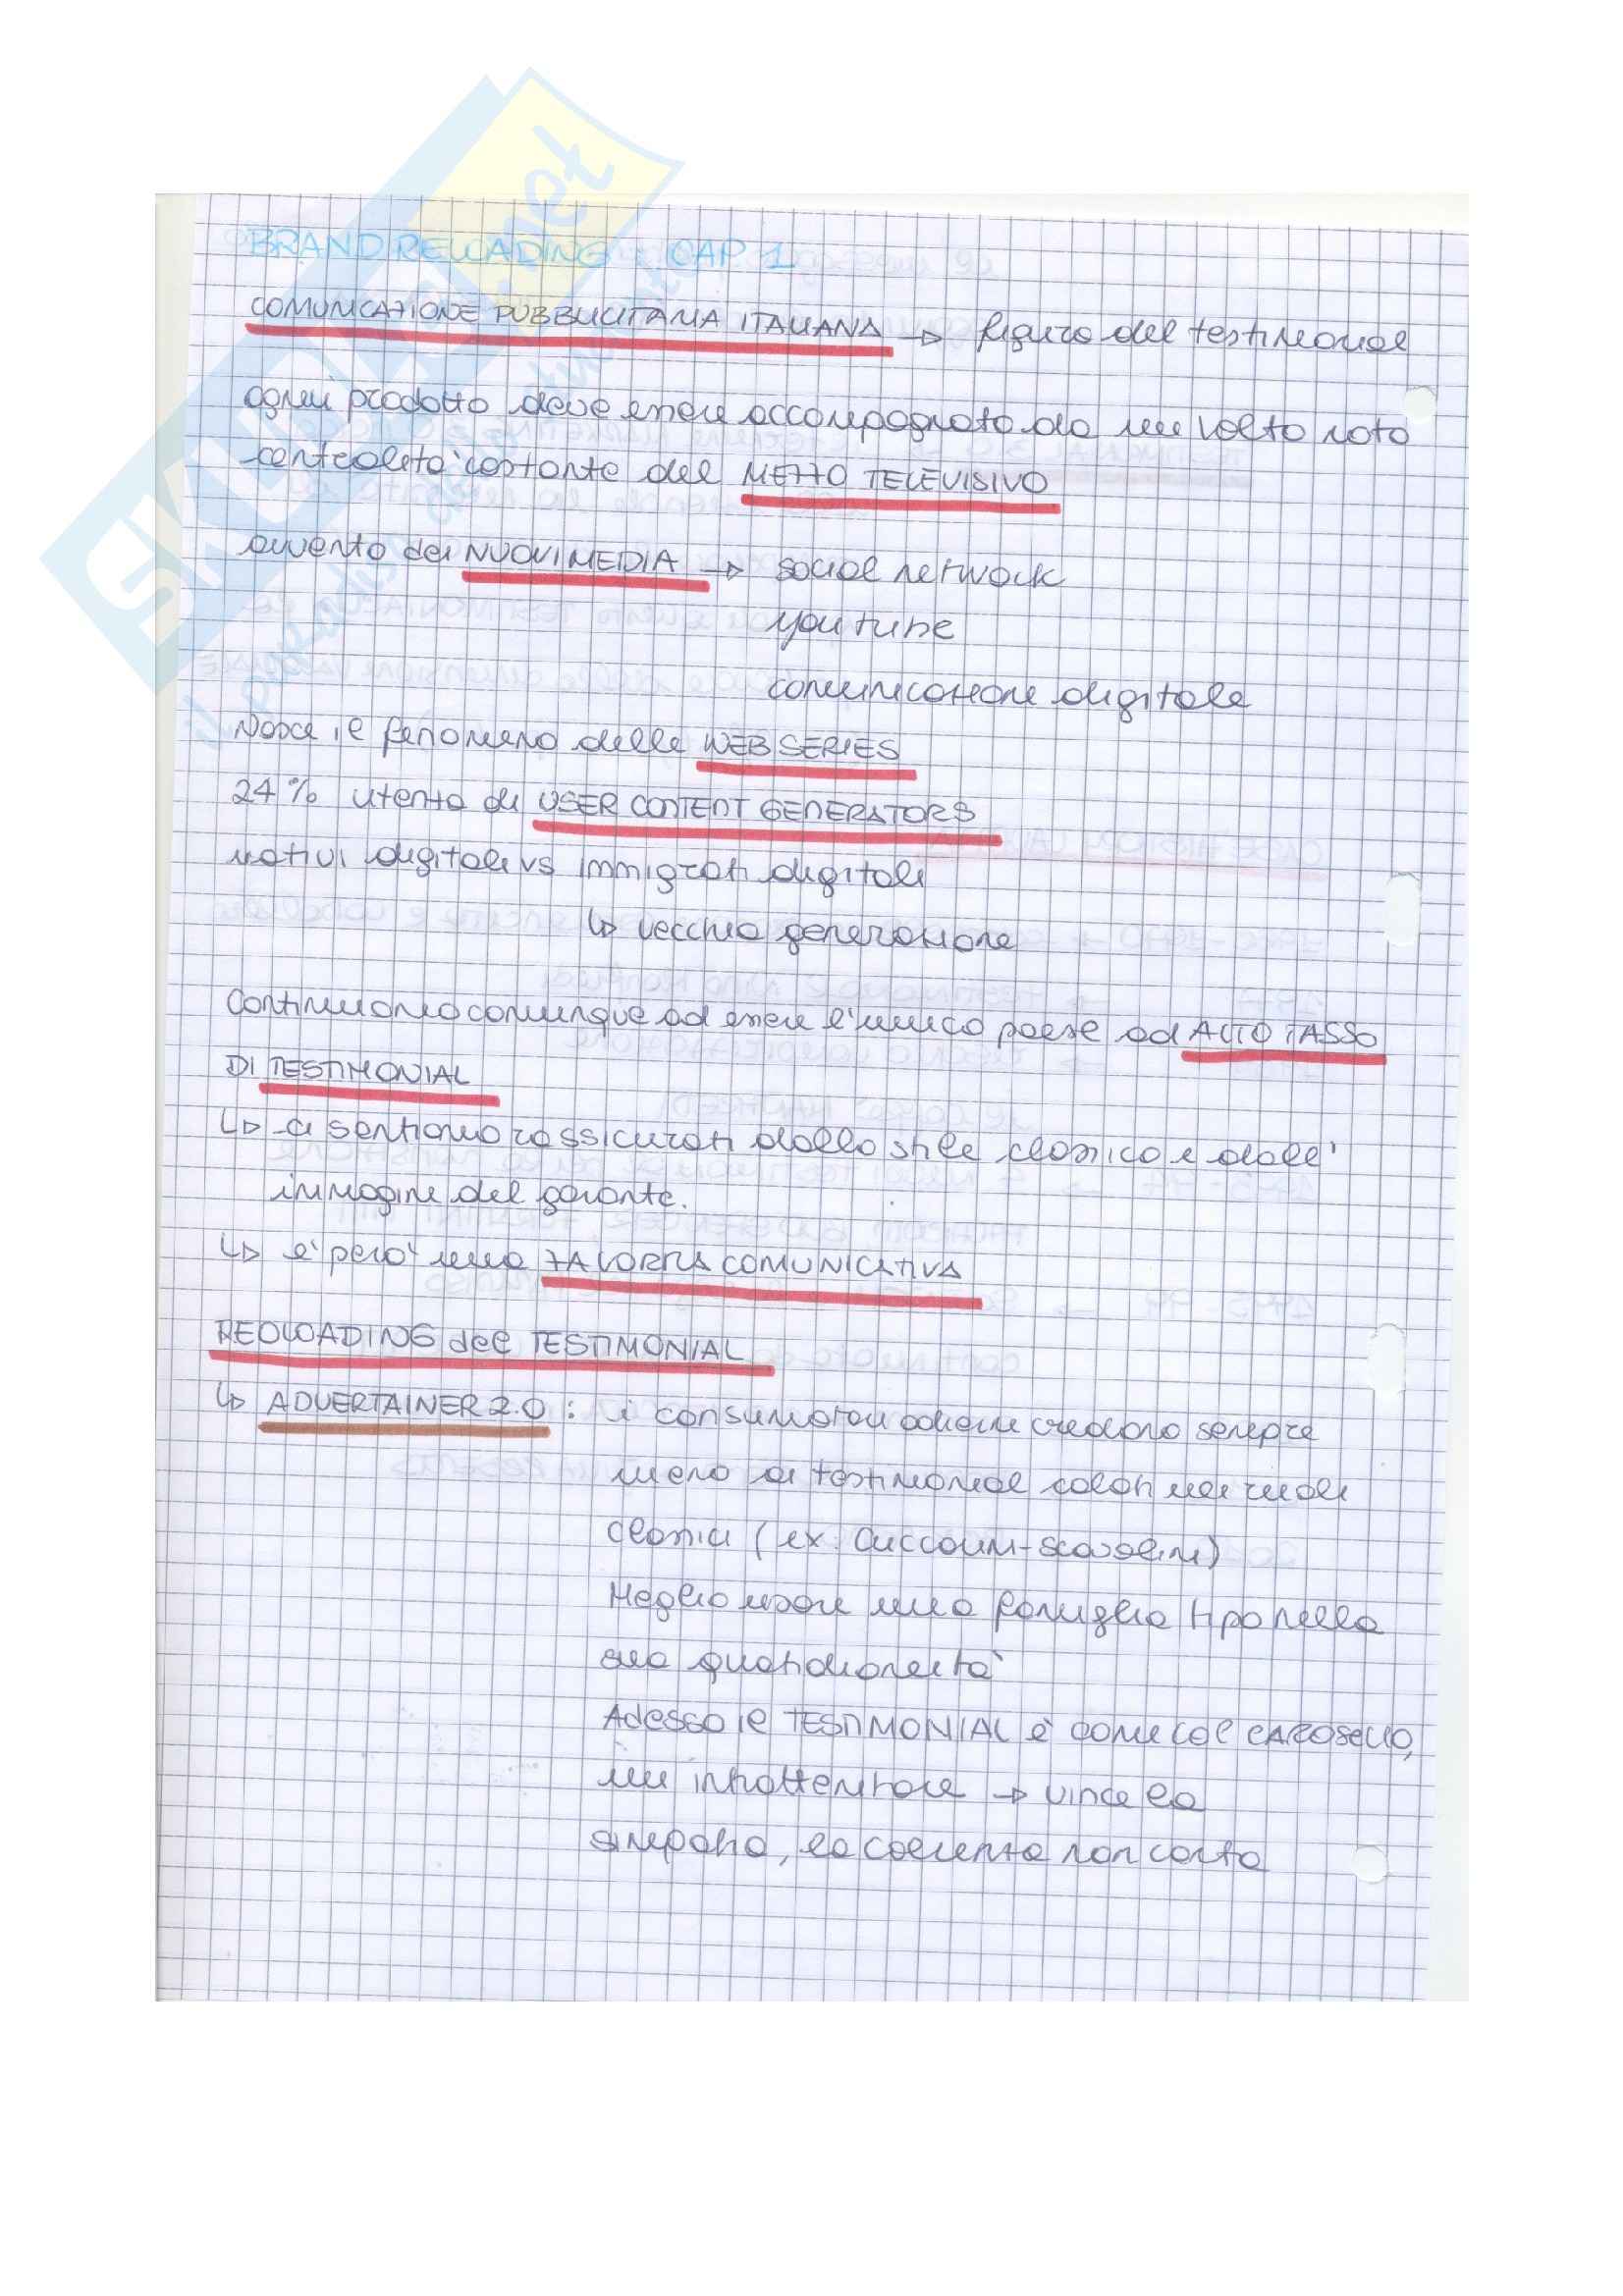 BRAND RELOADING : CAP 1
COMUNICAZIONE PUBBLICITARIA ITALIANA → figura del testimonial
ogni prodotto deve essere accompagnato da un volto noto
centralità costante del MEZZO TELEVISIVO
avvento dei NUOVI MEDIA → social network
youtube
comunicazione digitale
Nasce il fenomeno delle WEB SERIES
24% utenza di USER CONTENT GENERATORS
nativi digitali vs immigrati digitali
↳ vecchia generazione
Continuiamo comunque ad essere l'unico paese ad ALTO TASSO
DI TESTIMONIAL
↳ ci sentiamo rassicurati dallo stile classico e dall'
immagine del garante.
↳ e' però una ZAVORRA COMUNICATIVA
REOLOADING del TESTIMONIAL
↳ ADVERTAINER 2.0 : i consumatori odierni credono sempre
meno ai testimonial calati nei ruoli
classici (ex. Cuccarini-Scavolini)
Meglio usare una famiglia tipo nella
sua quotidianeità
Adesso il TESTIMONIAL è come col CAROSELLO,
un intrattenitore → vince la
simpatia, la coerenza non conta
SKUOLA.net
il paradiso dello studente